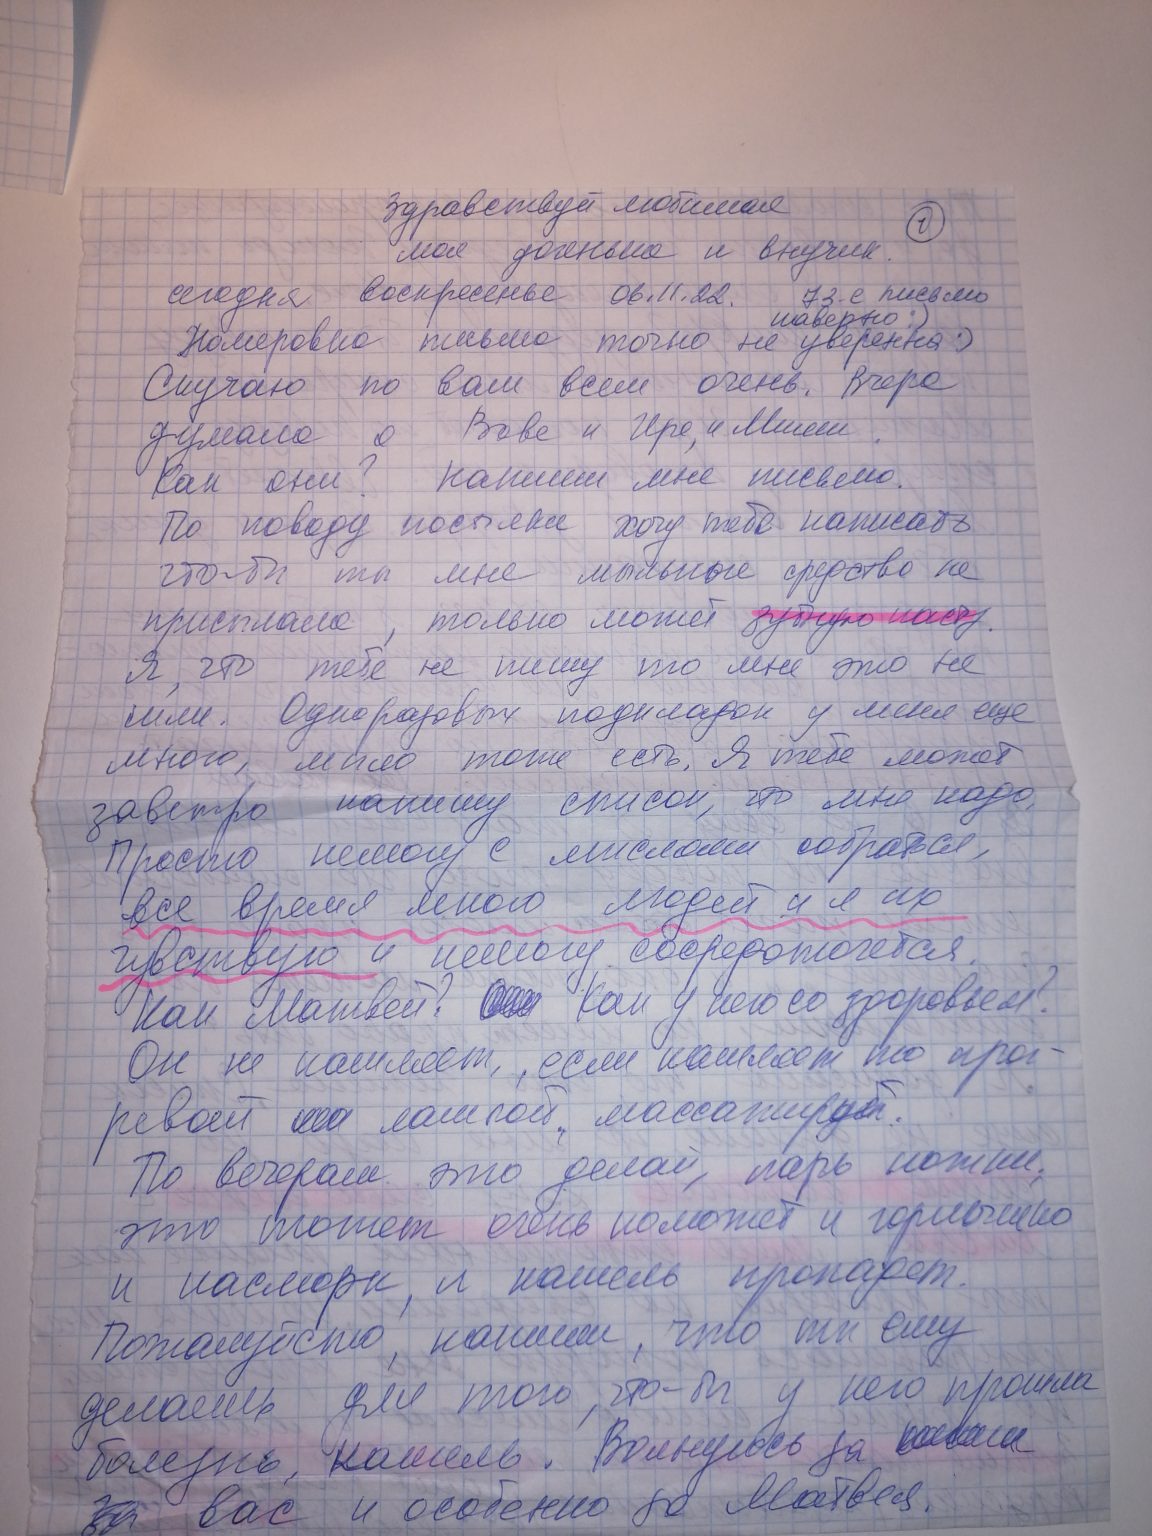 Здравствуй любимая
моя доченька и внучик. 1
сегодня воскресенье 06.11.22. 73-е письмо
наверно :)
Номеровка письма точно не уверенна :)
Скучаю по вам всем очень. Вчера
думала о Вове и Ире, и Миши.
Как они? Напиши мне письмо.
По поводу посылки хочу тебе написать
что-бы ты мне мыльные средства не
присылала, только может зубную пасту.
Я, что тебе не пишу то мне это не
шли. Одноразовых подкладок у меня еще
много, мыло тоже есть. Я тебе может
завтро напишу список, что мне надо.
Просто немогу с мыслями собратся,
все время много людей и я их
чувствую и немогу сосредоточется.
Как Матвей? Как у него со здоровьем?
Он не кашляет, если кашляет то прог-
ревай лампой, массажируй.
По вечерам это делай, парь ножки,
это может очень поможет и горлышко
и насморк, и кашель пропадет.
Пожалуйсто, напиши, что ты ему
делаешь для того, что-бы у него прошла
болезнь, кашель. Волнуюсь за
вас и особенно за Матвея.